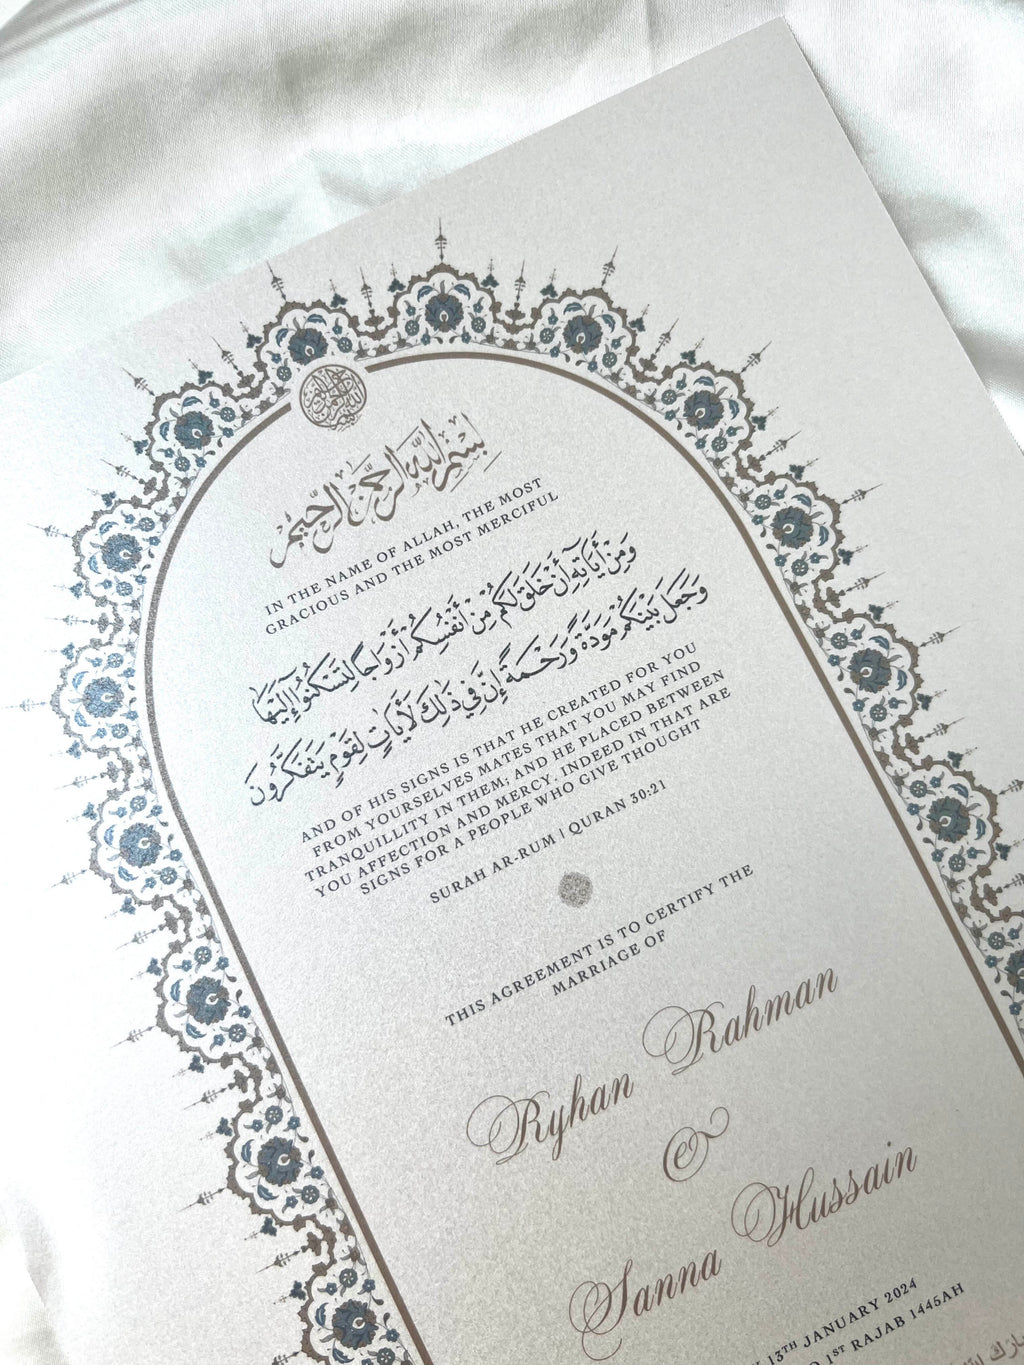 بِسْمِ اللَّهِ الرَّحْمَٰنِ الرَّحِيمِ
IN THE NAME OF ALLAH, THE MOST
GRACIOUS AND THE MOST MERCIFUL
وَمِنْ أَيَاتِهِ أَنْ خَلَقَ لَكُم مِّنْ أَنْفُسِكُمْ أَزْوَاجًا لِتَسْكُنُوا إِلَيْهَا
وَجَعَلَ بَيْنَكُم مَّوَدَّةً وَرَحْمَةً إِنَّ فِي ذَٰلِكَ لَأَيَاتٍ لِقَوْمٍ يَتَفَكَّرُونَ
AND OF HIS SIGNS IS THAT HE CREATED FOR YOU
FROM YOURSELVES MATES THAT YOU MAY FIND
TRANQUILLITY IN THEM; AND HE PLACED BETWEEN
YOU AFFECTION AND MERCY. INDEED IN THAT ARE
SIGNS FOR A PEOPLE WHO GIVE THOUGHT
SURAH AR-RUM | QURAN 30:21
THIS AGREEMENT IS TO CERTIFY THE
MARRIAGE OF
Ryhan Rahman
&
Sanna Hussain
13TH JANUARY 2024
1ST RAJAB 1445AH